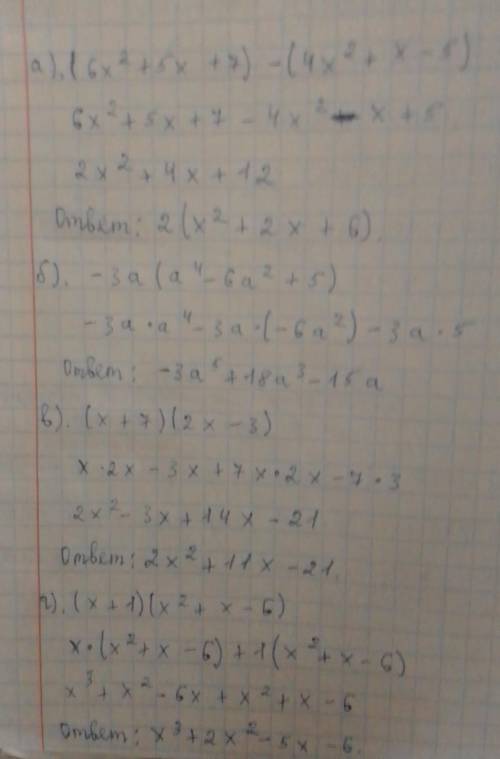 а). (6x² + 5x + 7) - (4x² + x - 5)
6x² + 5x + 7 - 4x² - x + 5
2x² + 4x + 12
Ответ: 2(x² + 2x + 6).
б). -3a(a⁴ - 6a² + 5)
-3a · a⁴ - 3a · (-6a²) - 3a · 5
Ответ: -3a⁵ + 18a³ - 15a
в). (x + 7)(2x - 3)
x · 2x - 3x + 7x · 2x - 7 · 3
2x² - 3x + 14x - 21
Ответ: 2x² + 11x - 21.
г). (x + 1)(x² + x - 6)
x · (x² + x - 6) + 1(x² + x - 6)
x³ + x² - 6x + x² + x - 6
Ответ: x³ + 2x² - 5x - 6.